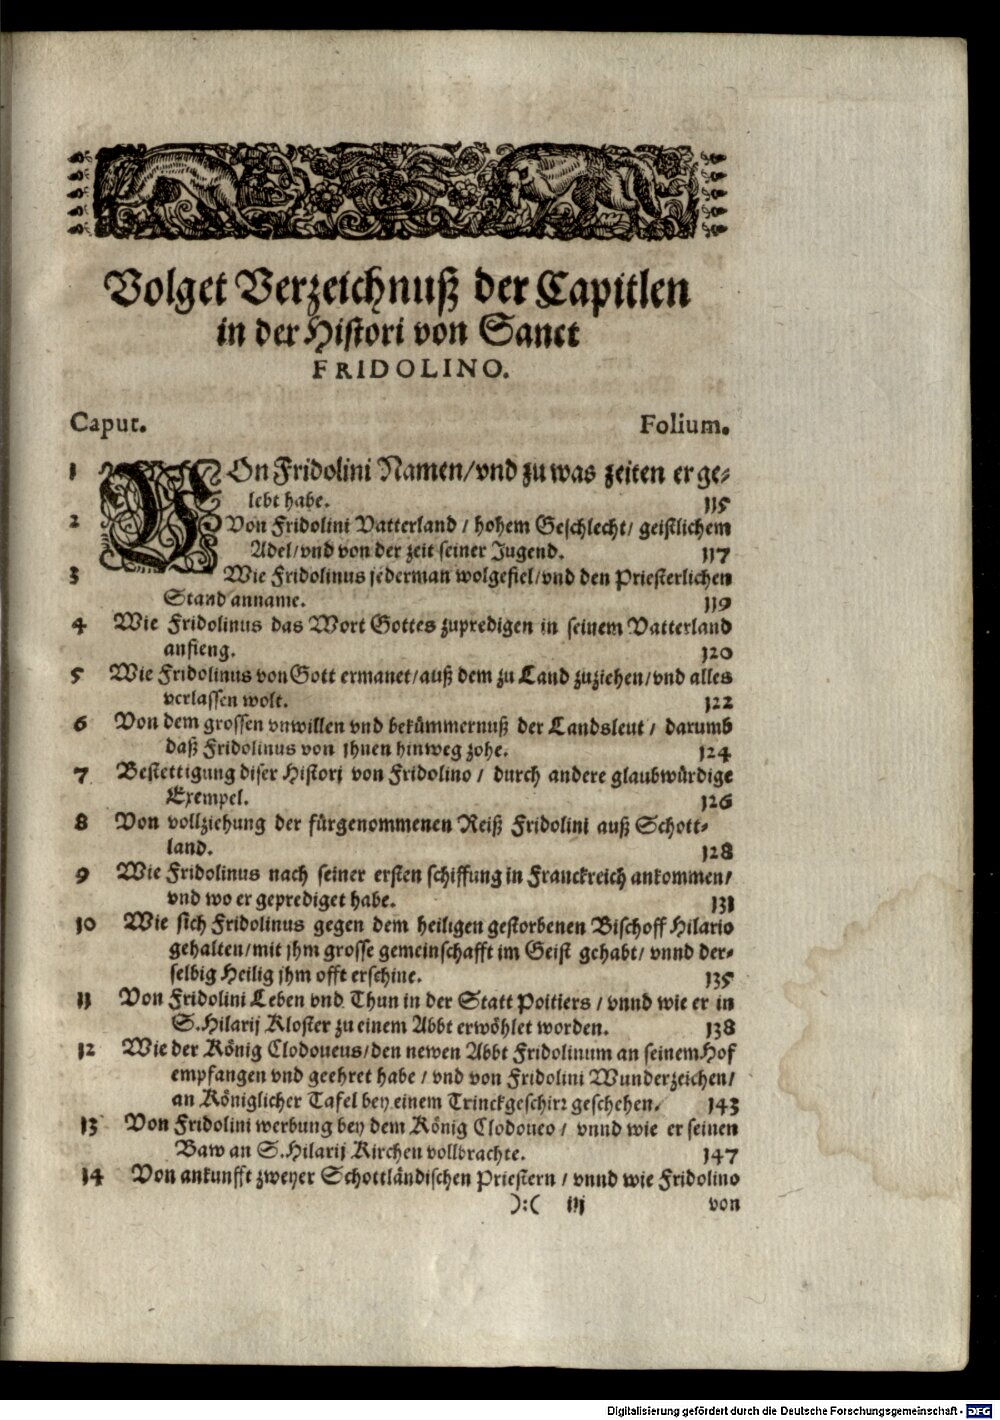 Volget Verzeichnuß der Capitlen
in der Histori von Sanct
FRIDOLINO.
Caput. Folium.
1 VOn Fridolini Namen/vnd zu was zeiten er ge-
lebt habe. 115
2 Von Fridolini Vatterland / hohem Geschlecht/ geistlichem
Adel/vnd von der zeit seiner Jugend. 117
3 Wie Fridolinus jederman wolgefiel/vnd den Priesterlichen
Stand anname. 119
4 Wie Fridolinus das Wort Gottes zupredigen in seinem Vatterland
anfieng. 120
5 Wie Fridolinus von Gott ermanet/auß dem zu Land zuziehen/vnd alles
verlassen wolt. 122
6 Von dem grossen vnwillen vnd bekümmernuß der Landsleut / darumb
daß Fridolinus von jhnen hinweg zohe. 124
7 Bestettigung diser Histori von Fridolino / durch andere glaubwürdige
Exempel. 126
8 Von vollziehung der fürgenommenen Reiß Fridolini auß Schott-
land. 128
9 Wie Fridolinus nach seiner ersten schiffung in Franckreich ankommen/
vnd wo er geprediget habe. 131
10 Wie sich Fridolinus gegen dem heiligen gestorbenen Bischoff Hilario
gehalten/mit jhm grosse gemeinschafft im Geist gehabt/ vnnd der-
selbig Heilig jhm offt erschine. 135
11 Von Fridolini Leben vnd Thun in der Statt Poitiers / vnnd wie er in
S. Hilarij Kloster zu einem Abbt erwöhlet worden. 138
12 Wie der König Clodoueus/den newen Abbt Fridolinum an seinem Hof
empfangen vnd geehret habe / vnd von Fridolini Wunderzeichen/
an Königlicher Tafel bey einem Trinckgeschirr geschehen. 143
13 Von Fridolini werbung bey dem König Clodoueo / vnnd wie er seinen
Baw an S. Hilarij Kirchen vollbrachte. 147
14 Von ankunfft zweyer Schottländischen Priestern / vnnd wie Fridolino
):( iij von
Digitalisierung gefördert durch die Deutsche Forschungsgemeinschaft - DFG